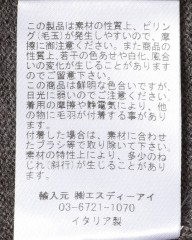 この製品は素材の性質上、ピリン
グ(毛玉)が発生しやすいので、摩
擦に御注意ください。また商品の
性質上、若干の色あせや白化、風合
いの変化が生じることがあります
のでご留意下さい。
この商品は鮮明な色合いですが、
日光に弱いのでご注意ください。
着用の摩擦や静電気により、他の
ものに毛羽が付着する事があり
ます。
付着した場合は、素材に合わせ
たブラシ等で取り除いて下さい。
素材の特性上により、多少のね
じれ(斜行)が生じることがありま
す。
輸入元 ㈱エスディーアイ
03-6721-1070
イタリア製